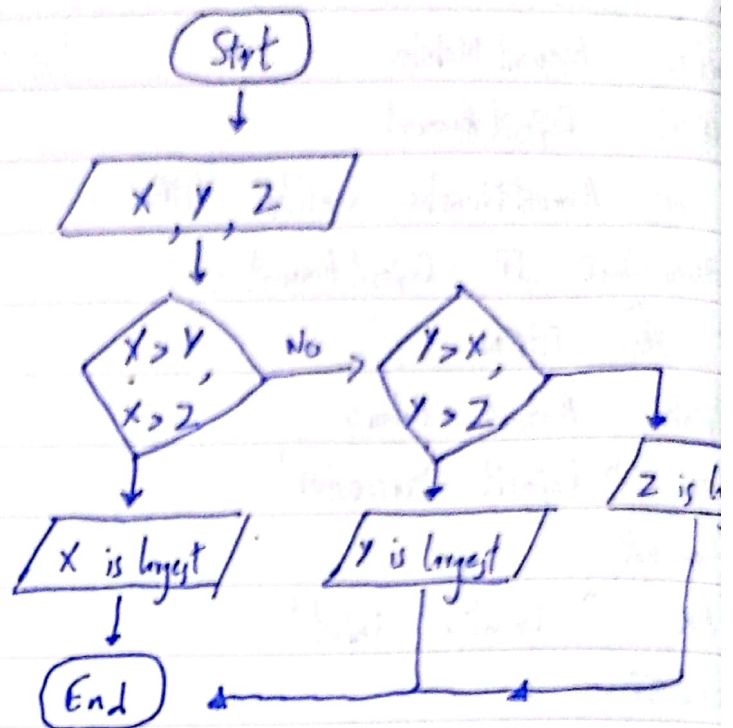 Strt
X, Y, Z
X > Y,
X > Z
No
Y > X,
Y > Z
Z is
X is largest
Y is largest
End